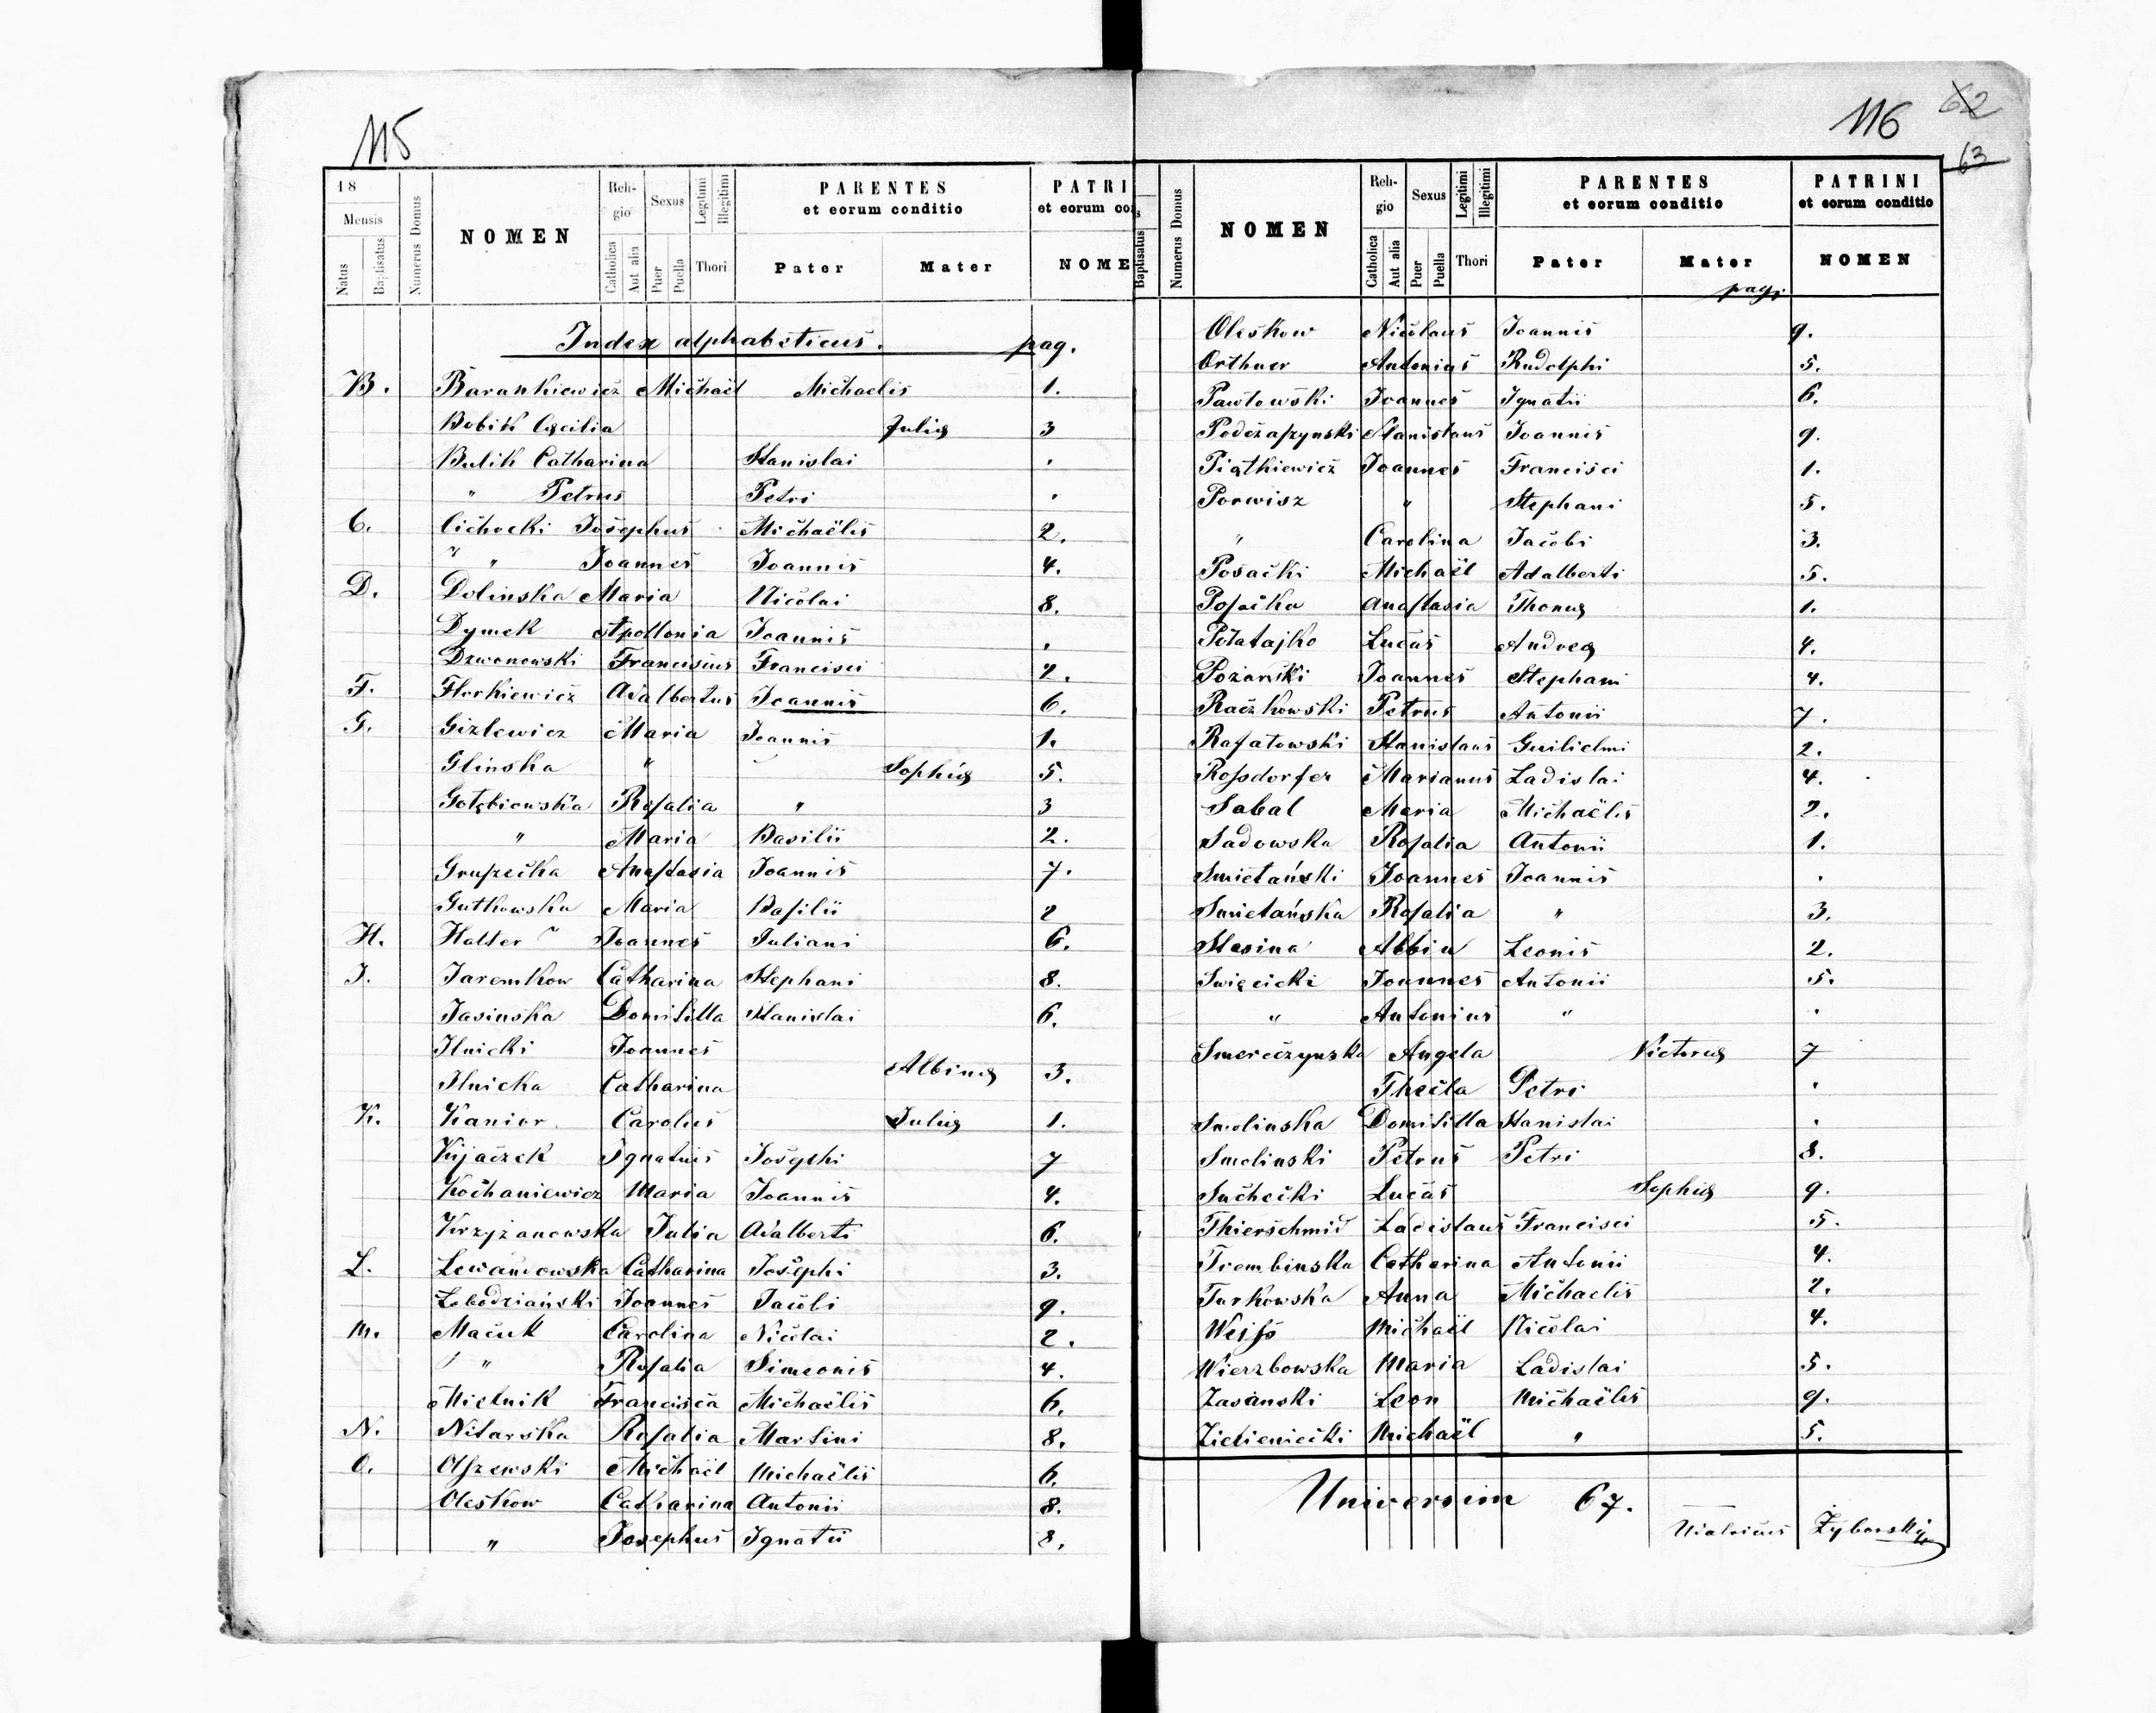 115
18
Mensis
Natus
Baptisatus
Numerus Domus
NOMEN
Reli-
gio
Catholica
Aut alia
Sexus
Puer
Puella
Legitimi
Illegitimi
Thori
PARENTES
et eorum conditio
Pater Mater
PATRI
et eorum con
NOME
Index alphabeticus. pag.
B. Barankiewicz Michaël Michaelis 1.
Bobik Cæcilia Juliæ 3
Bulik Catharina Stanislai .
" Petrus Petri .
C. Cichocki Josephus Michaëlis 2.
" " Joannes Joannis 4.
D. Dolinska Maria Nicolai 8.
Dymek Apollonia Joannis .
Dzwonowski Franciscus Francisci 2.
F. Florkiewicz Adalbertus Joannis 6.
G. Gizlewicz Maria Joannis 1.
Glinska " Sophiæ 5.
Gołębiowska Rosalia " 3
" Maria Basilii 2.
Anastasia Joannis 7.
Gutkowska Maria Basilii 2
H. Halter Joannes Juliani 6.
J. Jaremkow Catharina Stephani 8.
Jasinska Domitilla Stanislai 6.
Ilnicki Joannes
Ilnicka Catharina Albinæ 3.
K. Kanior Carolus Juliæ 1.
Kijaczek Ignatius Josephi 7
Kochaniewicz Maria Joannis 4.
Krzyżanowska Julia Adalberti 6.
L. Lewandowska Catharina Josephi 3.
Łobodziański Joannes Jacobi 9.
M. Macuk Carolina Nicolai 2.
" Rosalia Simeonis 4.
Mielnik Francisca Michaëlis 6.
N. Nitarska Rosalia Martini 8.
O. Olszewski Michaël Michaëlis 6.
Oleskow Catharina Antonii 8.
" Josephus Ignatii 8.
116
62
63
Baptisatus
Numerus Domus
NOMEN
Reli-
gio
Catholica
Aut alia
Sexus
Puer
Puella
Legitimi
Illegitimi
Thori
PARENTES
et eorum conditio
Pater Mater
PATRINI
et eorum conditio
NOMEN
pag.
Oleskow Nicolaus Joannis 9.
Orthner Antonius Rudolphi 5.
Pawłowski Joannes Ignatii 6.
Stanislaus Joannis 9.
Piątkiewicz Joannes Francisci 1.
Porwisz " Stephani 5.
" Carolina Jacobi 3.
Posacki Michaël Adalberti 5.
Posacka Anastasia Thomæ 1.
Połatajko Lucas Andreæ 4.
Pożański Joannes Stephani 4.
Raczkowski Petrus Antonii 7.
Rafałowski Stanislaus Guilielmi 2.
Rossdorfer Marianus Ladislai 4.
Sabal Maria Michaëlis 2.
Sadowska Rosalia Antonii 1.
Smietański Joannes Joannis .
Smietańska Rosalia " 3.
Slasina Albin Leonis 2.
Swięcicki Joannes Antonii 5.
" Antonius " .
Smereczynska Angela Victoriæ 7
Thecla Petri .
Smolinska Domitilla Stanislai .
Smolinski Petrus Petri 8.
Suchecki Lucas Sophiæ 9.
Thierschmid Ladislaus Francisci 5.
Trembinska Catharina Antonii 4.
Turkowska Anna Michaelis 2.
Weiss Michaël Nicolai 4.
Wierzbowska Maria Ladislai 5.
Zasanski Leon Michaëlis 9.
Zieleniecki Michaël " 5.
Universim 67.
Zyborski